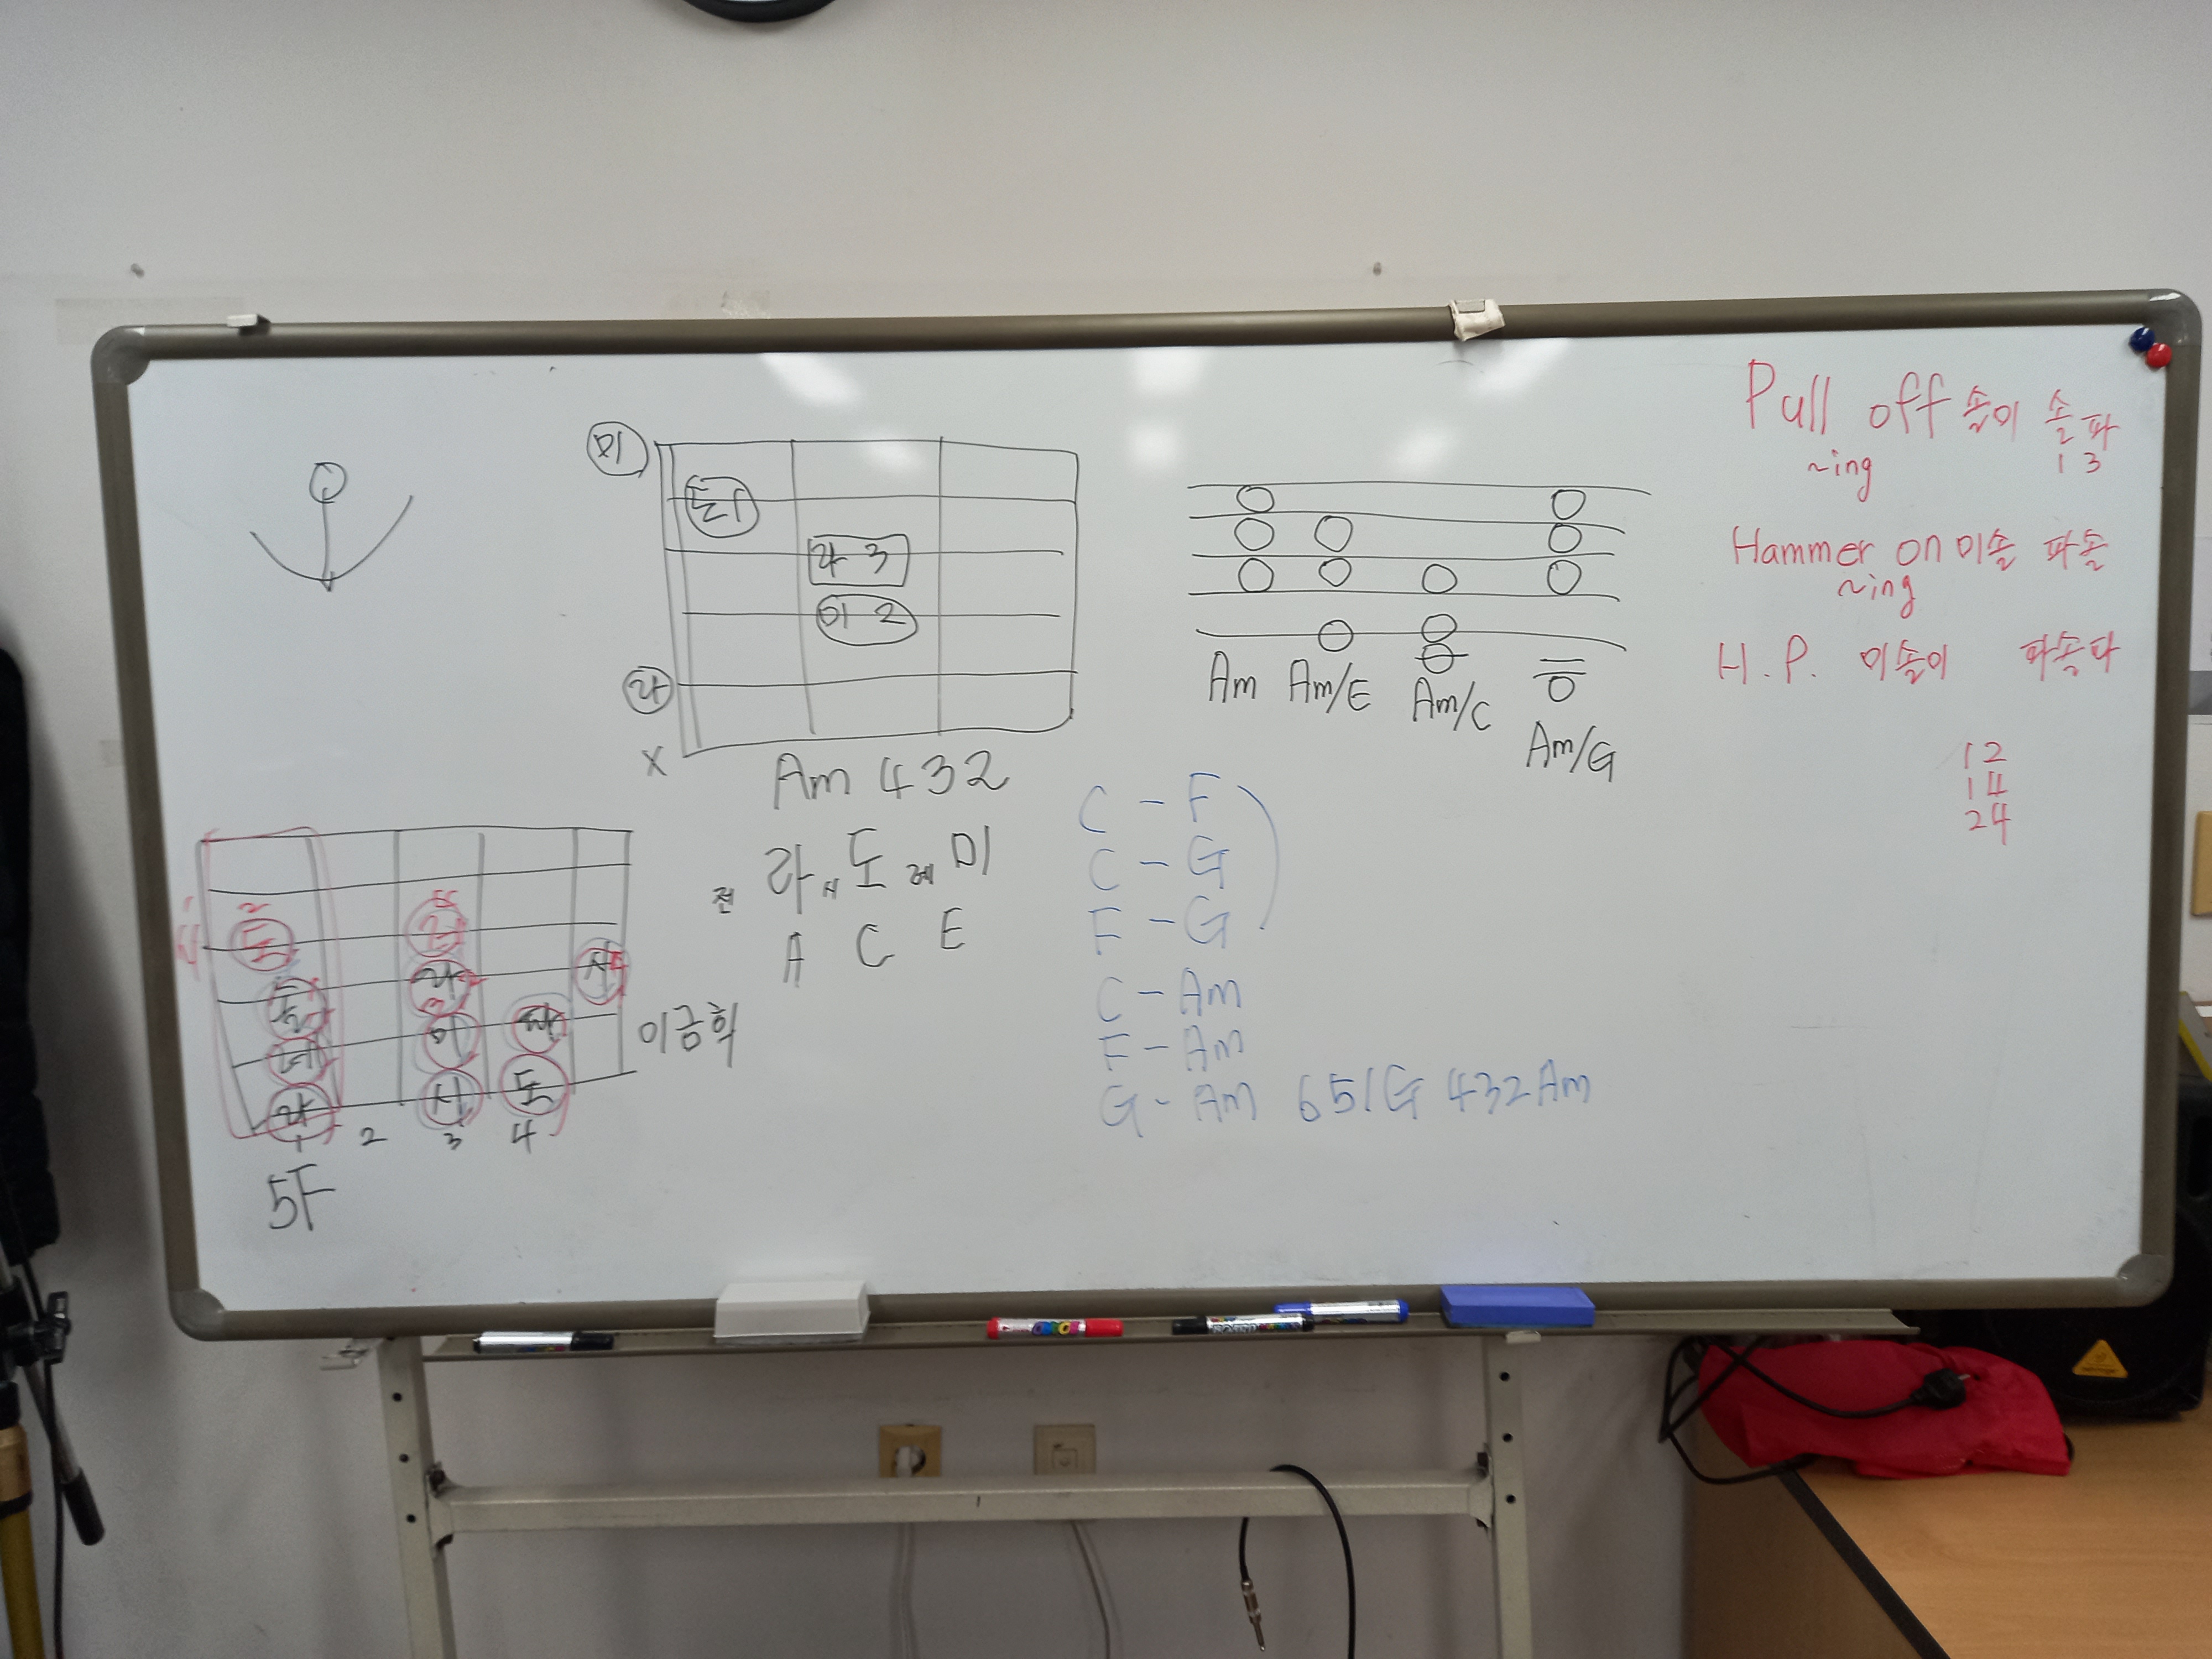 미
도 1
라 3
미 2
라
X
Am 432
전 라 시 도 레 미
A C E
Am Am/E Am/C Am/G
Pull off 솔미 솔파
~ing 1 3
Hammer on 미솔 파솔
~ing
H.P. 미솔미 파솔파
12
14
24
C - F
C - G
F - G
C - Am
F - Am
G - Am 651G 432Am
도
라
시
미
레
파
라 시 도
1 2 3 4
5F
이금희